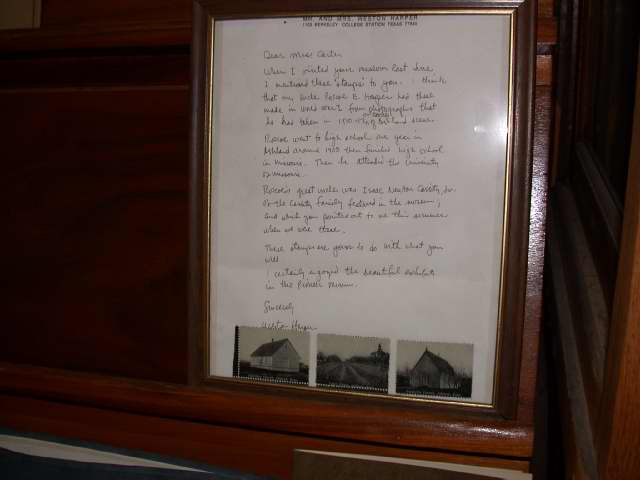 MR. AND MRS. WESTON HARPER
COLLEGE STATION TEXAS
Dear Miss Carter
When I visited your museum last June
I mentioned these "stamps" to you. I think
that my uncle Roscoe E. Harper had these
made in World War I from photographs that
he has taken in of Ashland scenes.
Roscoe went to high school one year in
Ashland around then finished high school
in Missouri. Then he attended the University
of Missouri.
Roscoe's great uncle was Isaac Newton
of the family featured in the museum,
and which you pointed out to me this summer
when we were there.
These stamps are yours to do with what you
will.
I certainly enjoyed the beautiful exhibits
in the Pioneer museum.
Sincerely
Weston Harper